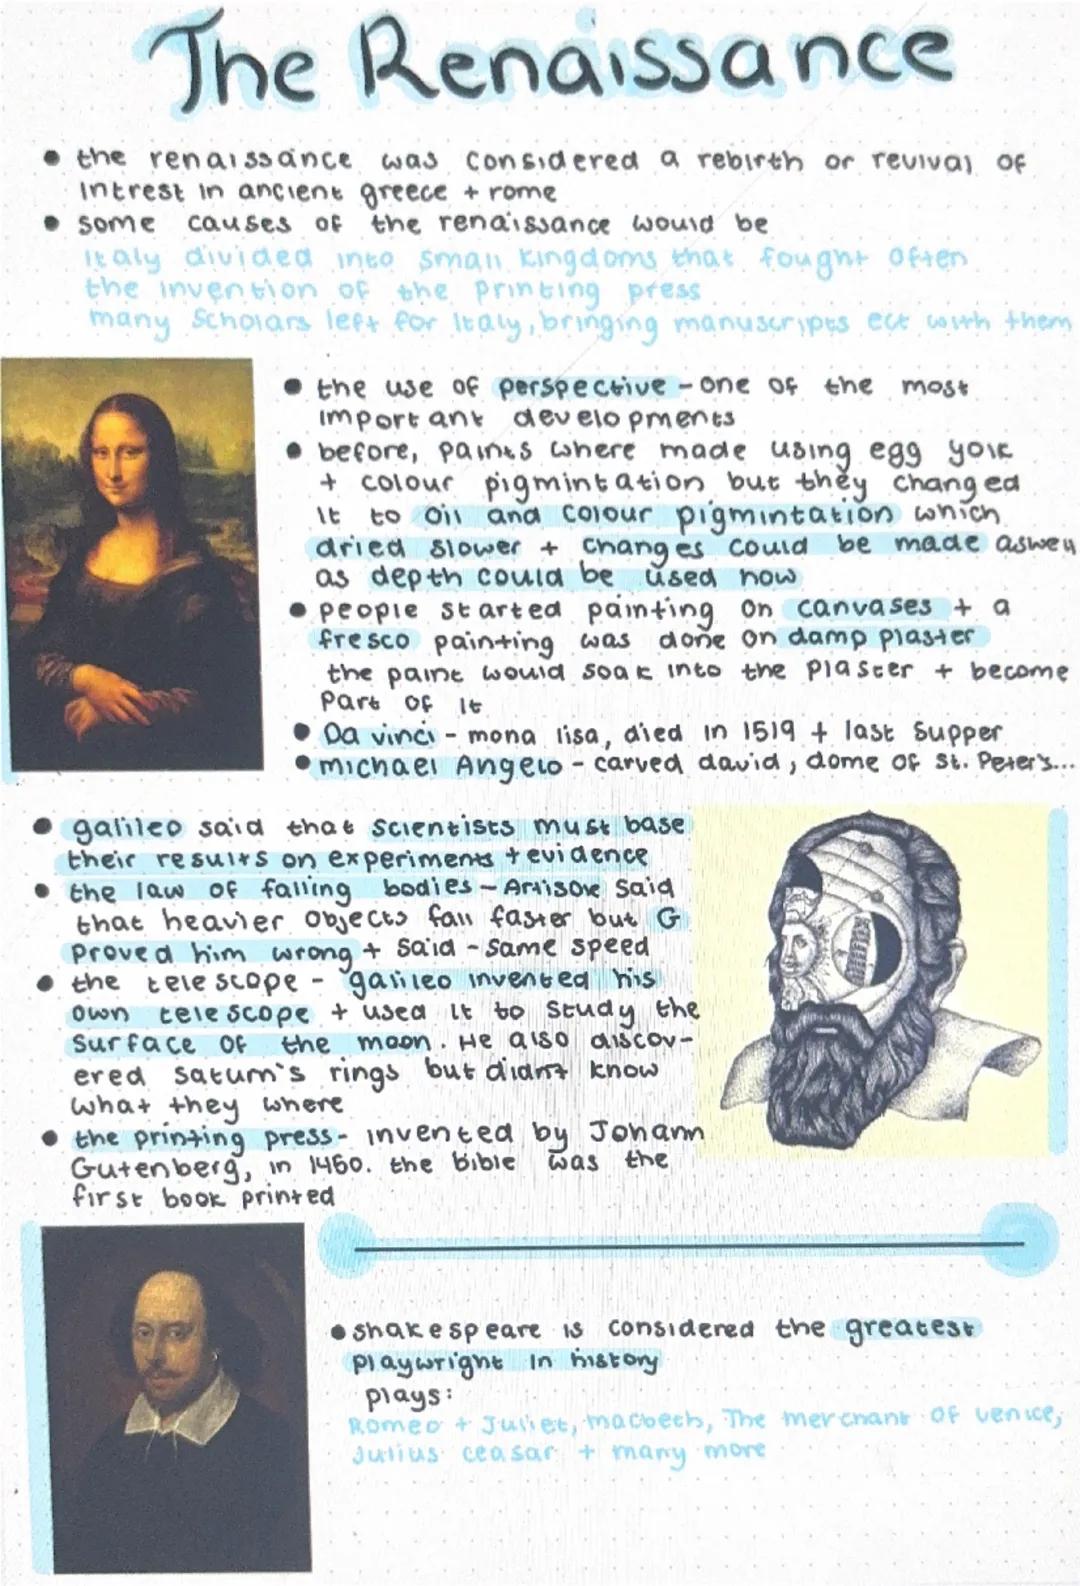 The Renaissance
• the renaissance was considered a rebirth or revival of
intrest in ancient greece + rome
• some causes of the renaissance would be
Italy divided into small kingdoms that fought often
the invention of the printing press
many scholars left for Italy, bringing manuscripts ect with them
• the use of perspective - one of the most
important developments
• before, paints where made using egg yolk
+ colour pigmintation but they changed
it to oil and colour pigmintation which
dried slower + changes could be made aswell
as depth could be used now
• people started painting on canvases + a
fresco painting was done on damp plaster
the paint would soak into the plaster + become
part of it
• Da vinci - mona lisa, died in 1519 + last supper
• michael Angelo - carved david, dome of st. Peter's...
• galileo said that scientists must base
their results on experiments + evidence
• the law of falling bodies - Artisole said
that heavier objects fall faster but G
proved him wrong + said - same speed
• the telescope - galileo invented his
own telescope + used it to study the
surface of the moon. He also discov-
ered saturn's rings but didnt know
what they where
• the printing press - invented by Johann
Gutenberg, in 1450. the bible was the
first book printed
• shakespeare is considered the greatest
playwright in history
plays:
Romeo + Juliet, macbeth, The merchant of venice,
Julius ceasar + many more